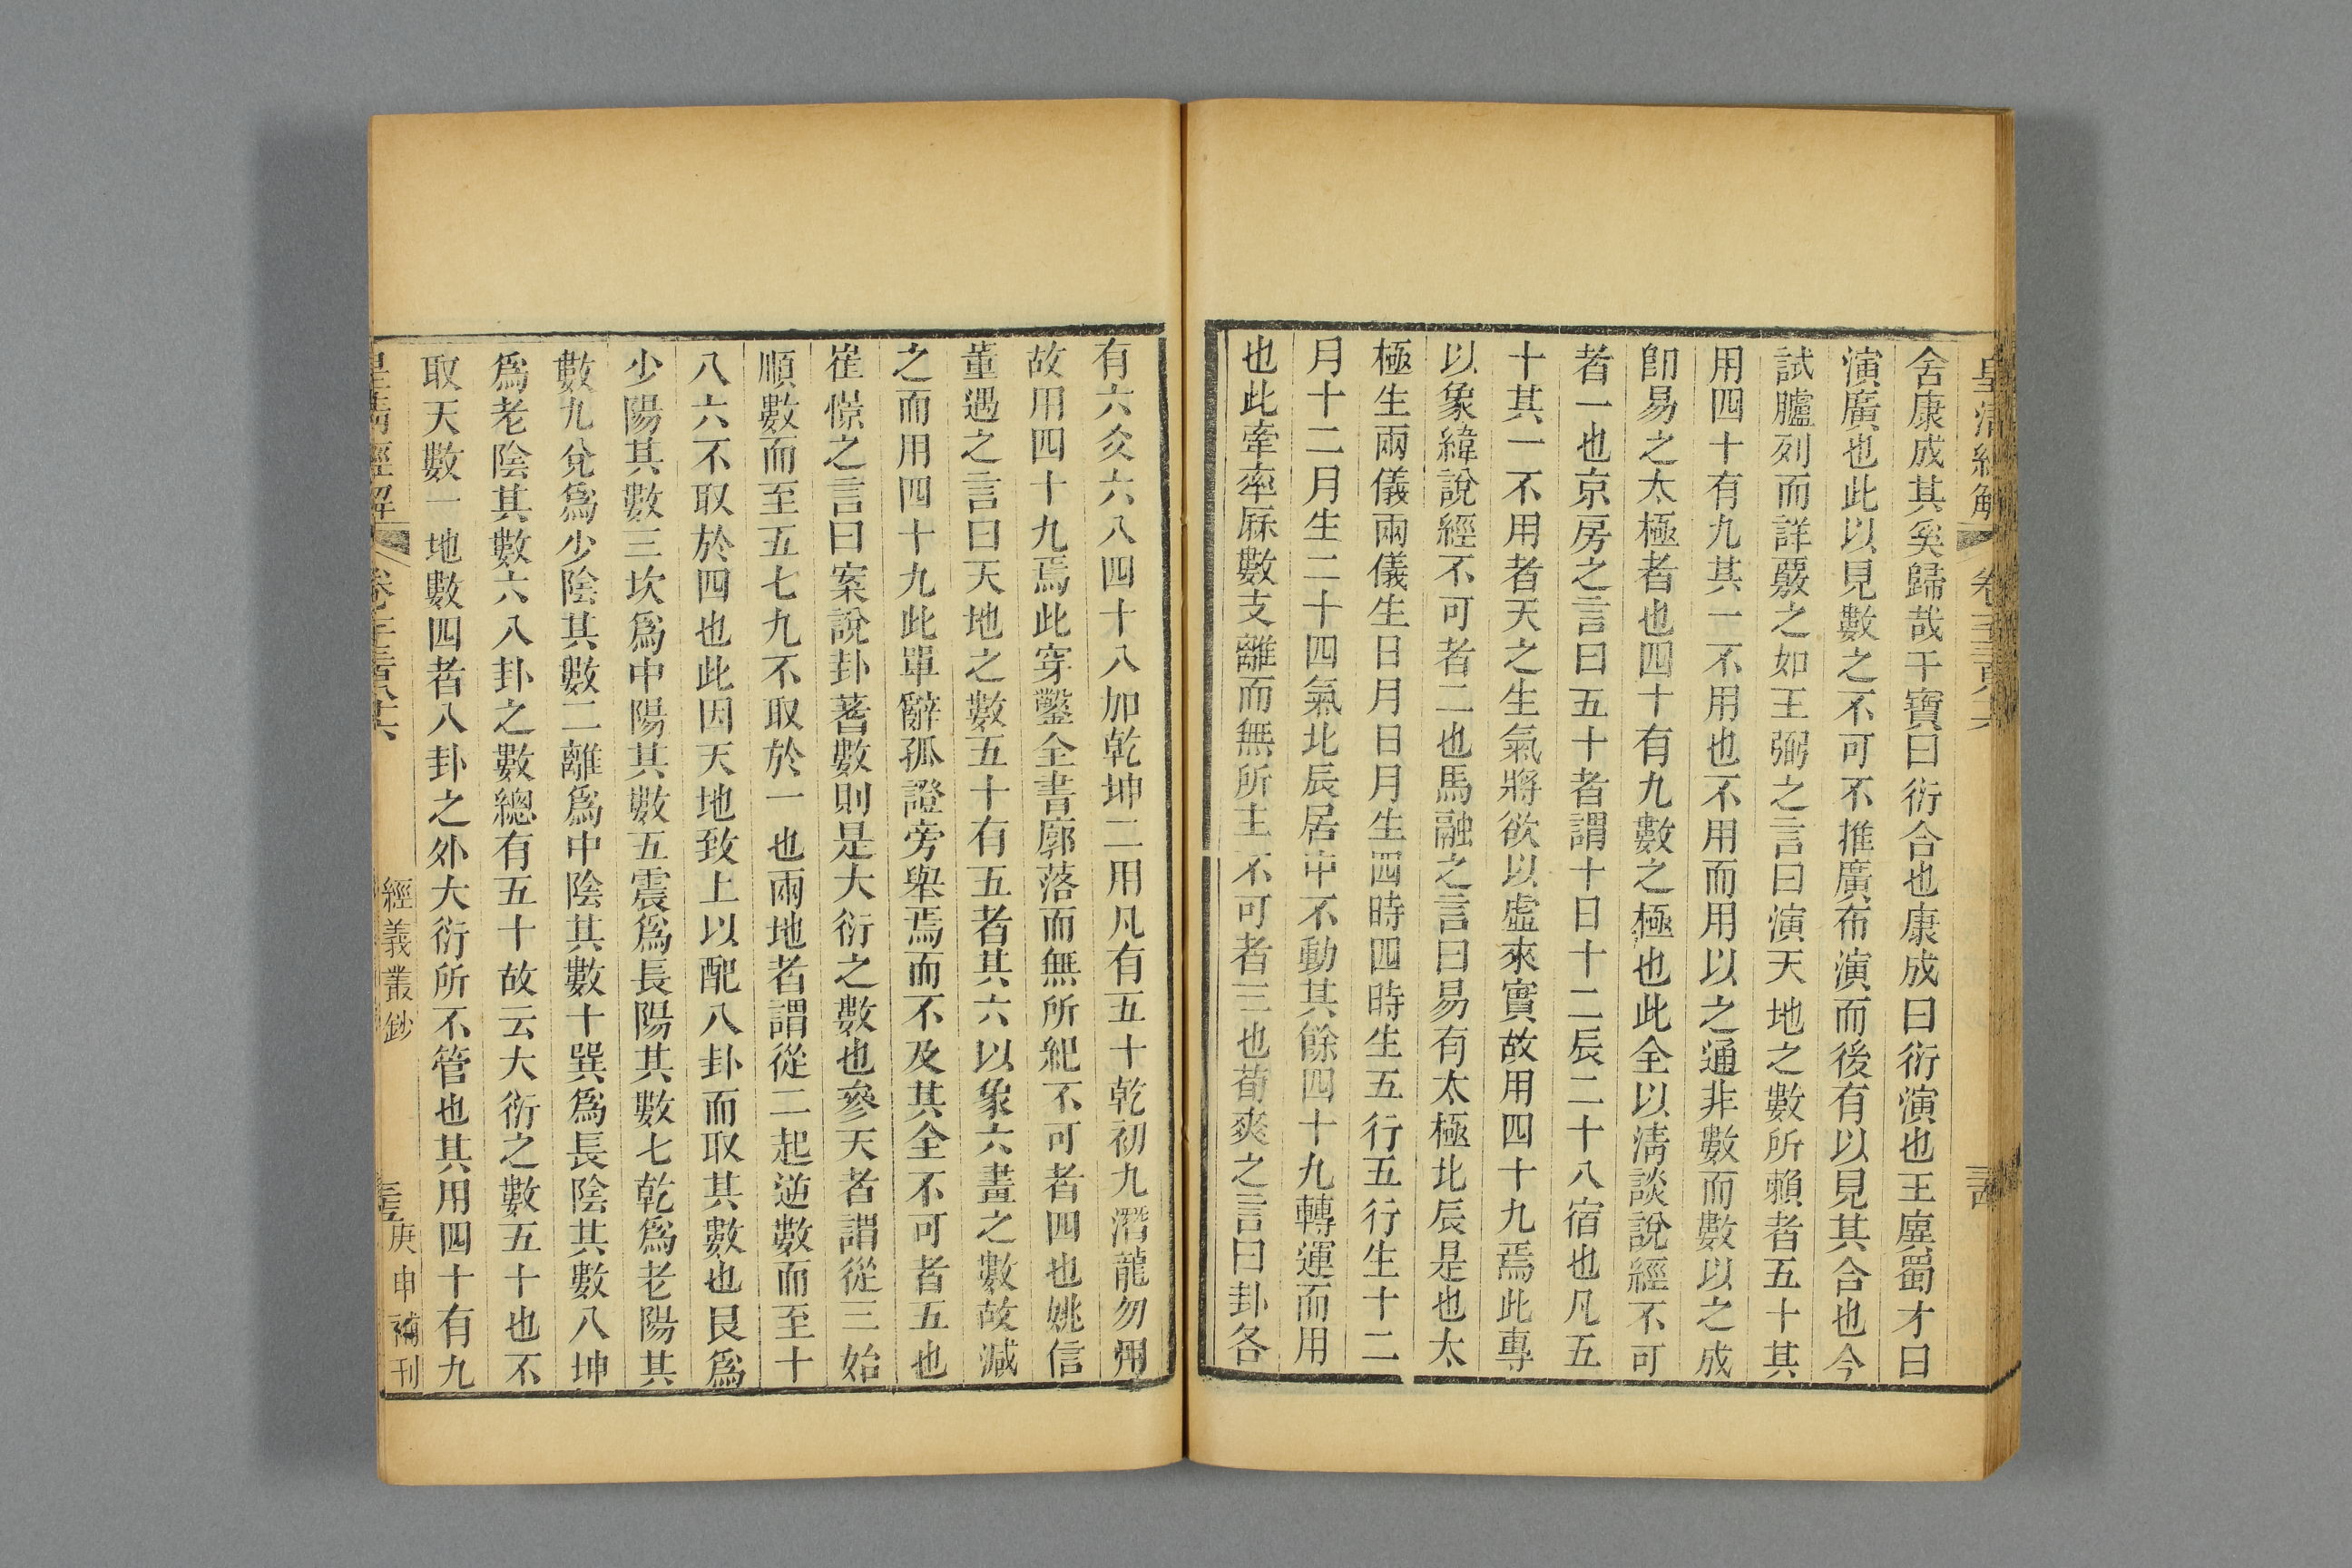 皇清經解
舍康成其奚歸哉干寶曰衍合也康成曰衍演也王廙蜀才曰
演廣也此以見數之不可不推廣布演而後有以見其合也今
試臚列而詳覈之如王弼之言曰演天地之數所賴者五十其
用四十有九其一不用也不用而用以之通非數而數以之成
卽易之太極者也四十有九數之極也此全以淸談說經不可
者一也京房之言曰五十者謂十日十二辰二十八宿也凡五
十其一不用者天之生氣將欲以虛來實故用四十九焉此專
以象緯說經不可者二也馬融之言曰易有太極北辰是也太
極生兩儀兩儀生日月日月生四時四時生五行五行生十二
月十二月生二十四氣北辰居中不動其餘四十九轉運而用
也此牽率厤數支離而無所主不可者三也荀爽之言曰卦各
有六爻六八四十八加乾坤二用凡有五十乾初九潛龍勿用
故用四十九焉此穿鑿全書廓落而無所紀不可者四也姚信
董遇之言曰天地之數五十有五者其六以象六畫之數故減
之而用四十九此單辭孤證旁舉焉而不及其全不可者五也
崔憬之言曰案說卦蓍數則是大衍之數也參天者謂從三始
順數而至五七九不取於一也兩地者謂從二起逆數而至十
八六不取於四也此因天地致上以配八卦而取其數也艮爲
少陽其數三坎爲中陽其數五震爲長陽其數七乾爲老陽其
數九兌爲少陰其數二離爲中陰其數十巽爲長陰其數八坤
爲老陰其數六八卦之數總有五十故云大衍之數五十也不
取天數一地數四者八卦之外大衍所不管也其用四十有九
皇淸經解
經義叢鈔
庚申補刊